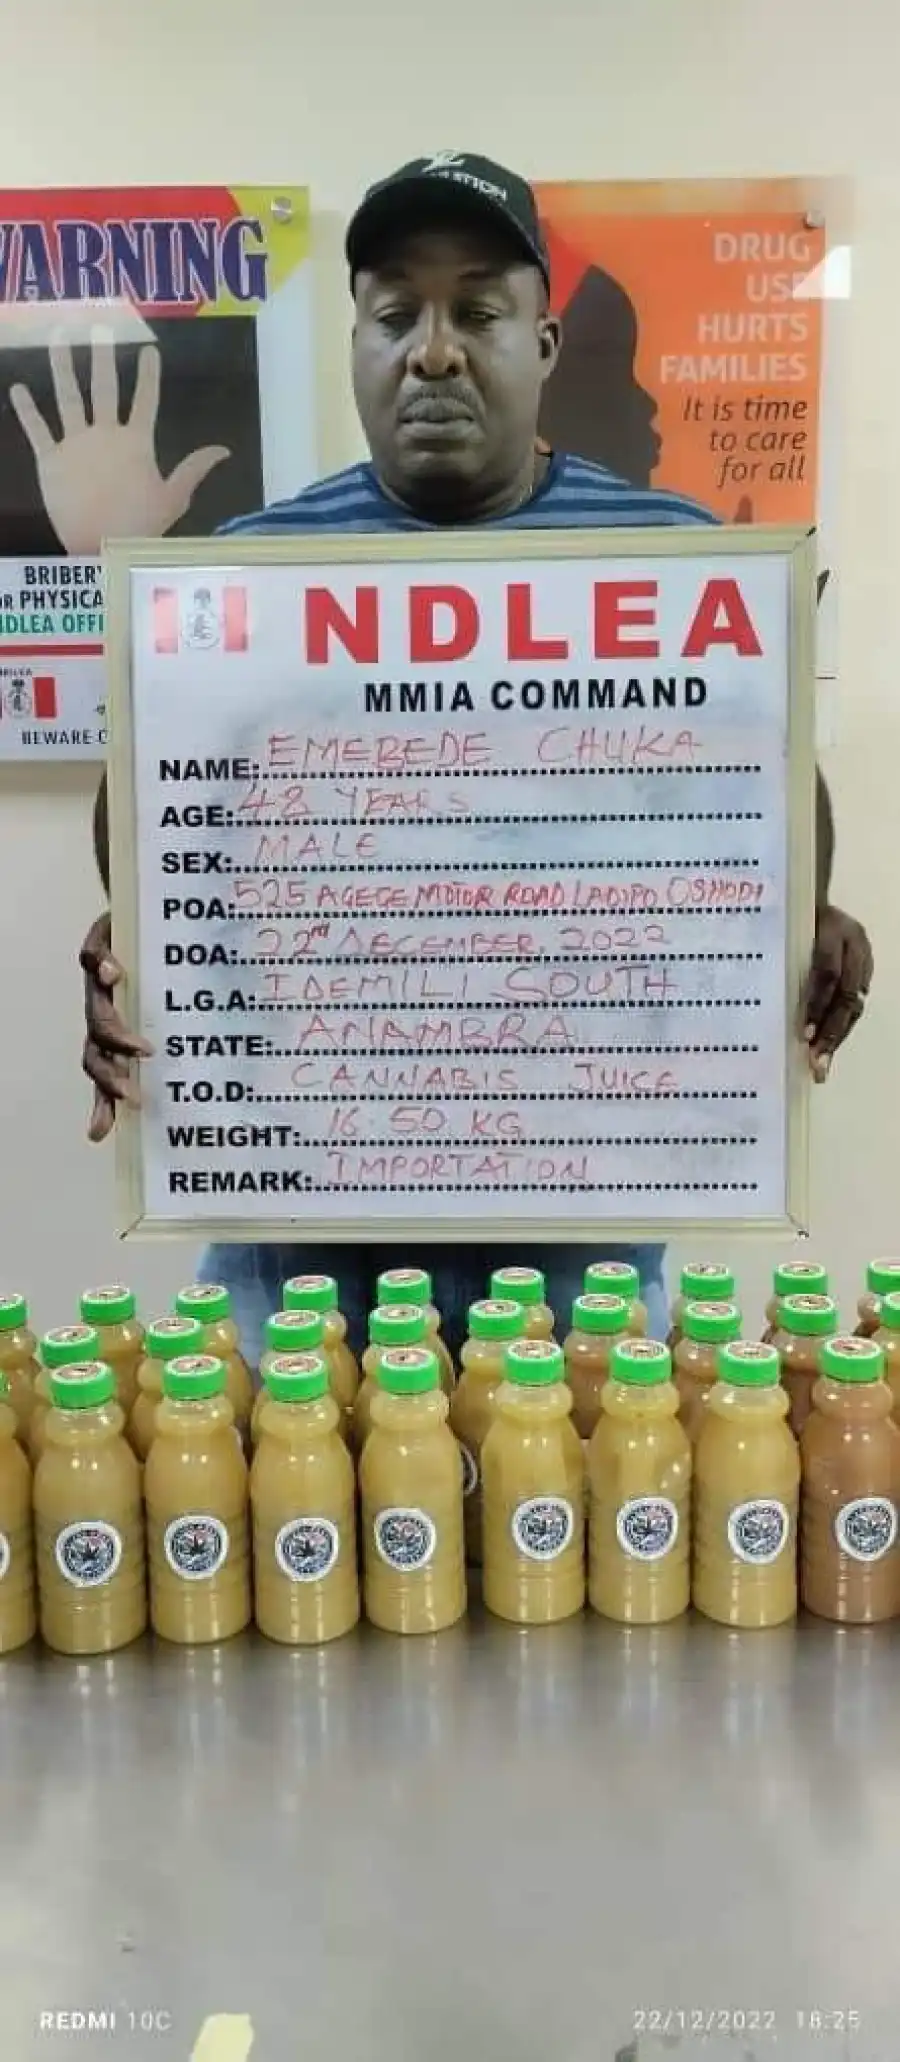 WARNING
BRIBERY
OR PHYSICA
NDLEA OFFI
BEWARE
DRUG
USE
HURTS
FAMILIES
It is time
to care
for all
NDLEA
MMIA COMMAND
NAME: EMEBEDE CHUKA
AGE: 48 YEARS
SEX: MALE
POA: 525 AGEGE MOTOR ROAD LADIPO OSHODI
DOA: 22nd DECEMBER, 2022
L.G.A: IDEMILI SOUTH
STATE: ANAMBRA
T.O.D: CANNABIS JUICE
WEIGHT: 16.50 KG
REMARK: IMPORTATION
REDMI 10C
22/12/2022 16:25